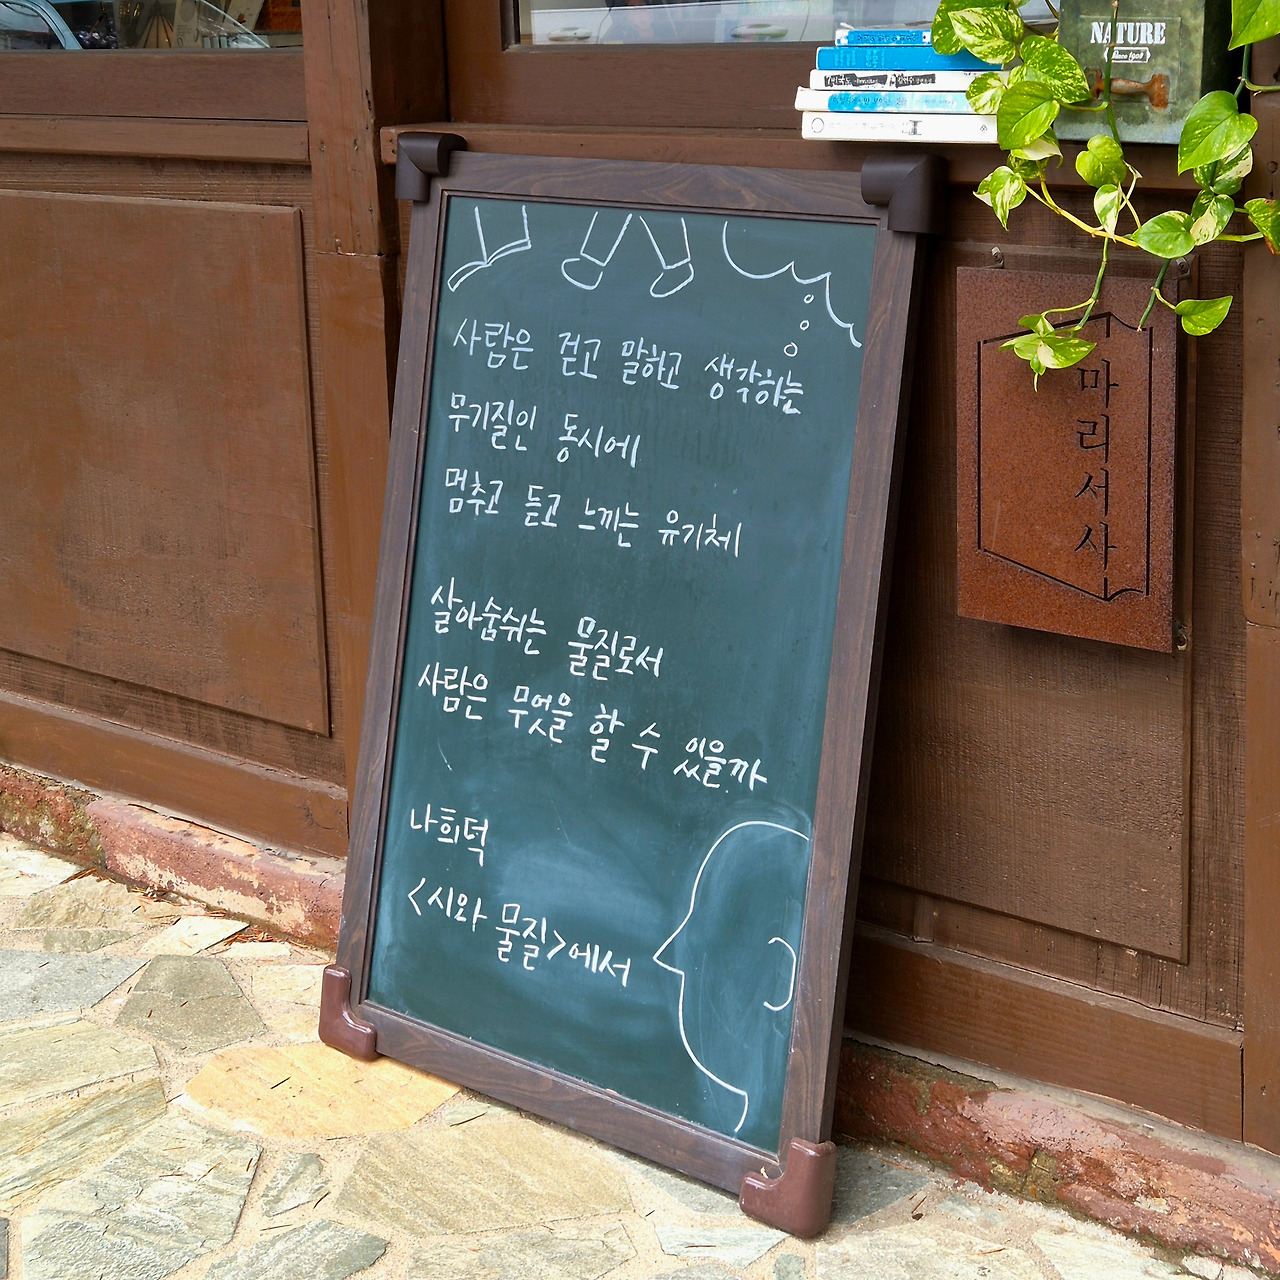 NATURE
Since 1904
사람은 걷고 말하고 생각하는
무기질인 동시에
멈추고 듣고 느끼는 유기체
살아숨쉬는 물질로서
사람은 무엇을 할 수 있을까
나희덕
<시와 물질>에서
마리서사